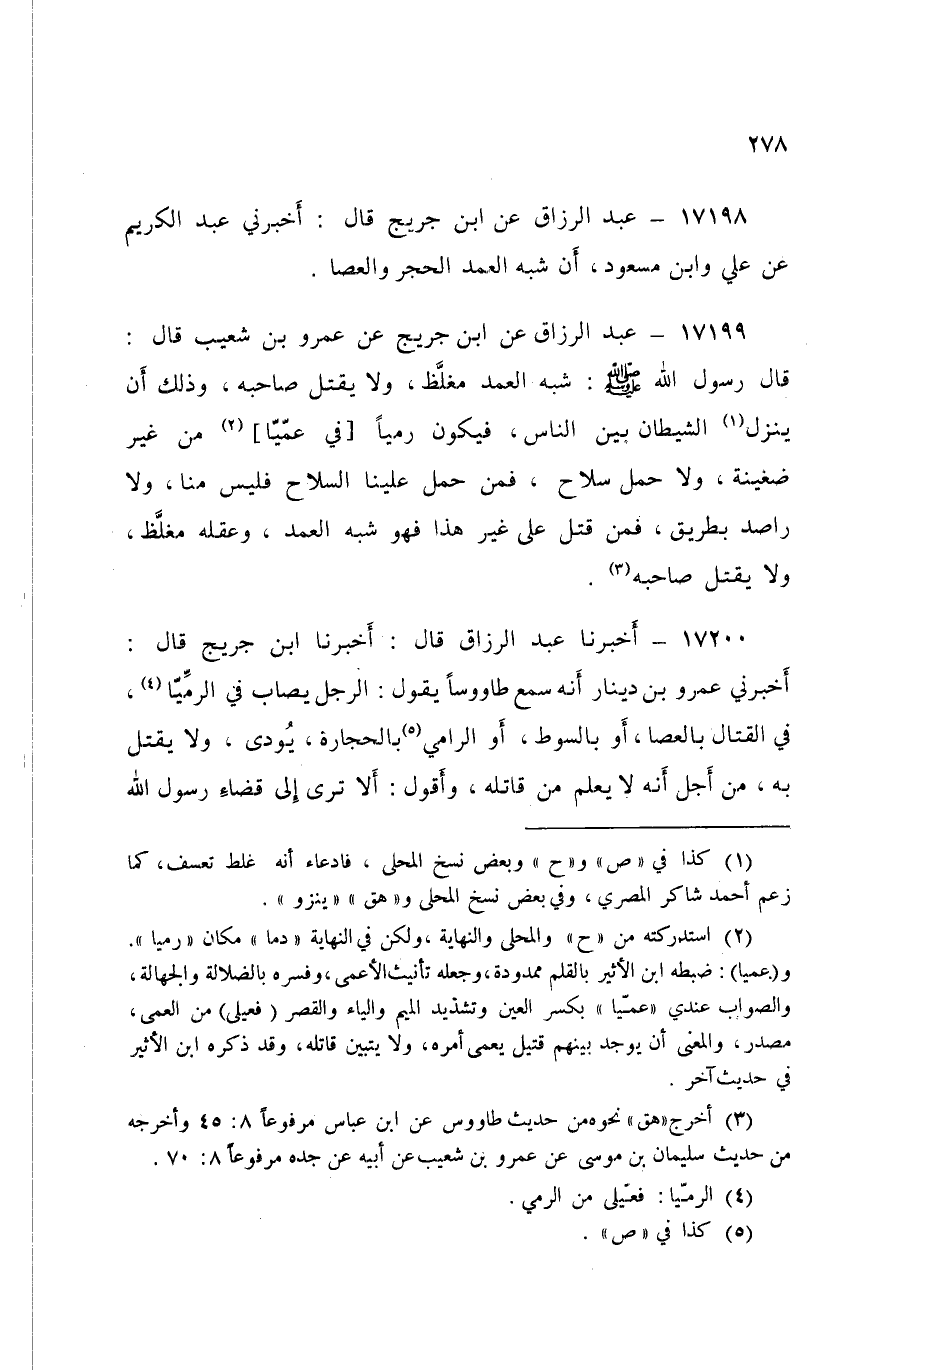 ٢٧٨
١٧١٩٨ – عبد الرزاق عن ابن جريج قال : أَخبرني عبد الكريم
عن علي وابن مسعود ، أَن شبه العمد الحجر والعصا .
١٧١٩٩ – عبد الرزاق عن ابن جريج عن عمرو بن شعيب قال :
قال رسول الله ﷺ : شبه العمد مغلَّظ ، ولا يقتل صاحبه ، وذلك أَن
ينزل(١) الشيطان بين الناس ، فيكون رمياً [في عمّيّا] (٢) من غير
ضغينة ، ولا حمل سلاح ، فمن حمل علينا السلاح فليس منا ، ولا
راصد بطريق ، فمن قتل على غير هذا فهو شبه العمد ، وعقله مغلَّظ ،
ولا يقتل صاحبه(٣) .
١٧٢٠٠ – أَخبرنا عبد الرزاق قال : أَخبرنا ابن جريج قال :
أَخبرني عمرو بن دينار أَنه سمع طاووساً يقول : الرجل يصاب في الرِّميّا(٤) ،
في القتال بالعصا ، أَو بالسوط ، أَو الرامي(٥) بالحجارة ، يُودى ، ولا يقتل
به ، من أَجل أَنه لا يعلم من قاتله ، وأَقول : أَلا ترى إلى قضاءِ رسول الله
(١) كذا في « ص » و« ح » وبعض نسخ المحلى ، فادعاء أنه غلط تعسف ، كما
زعم أحمد شاكر المصري ، وفي بعض نسخ المحلى و« هق » « ينزو » .
(٢) استدركته من « ح » والمحلى والنهاية ، ولكن في النهاية « دما » مكان « رميا » .
و(عميا) : ضبطه ابن الأثير بالقلم ممدودة ، وجعله تأنيث الأعمى ، وفسره بالضلالة والجهالة ،
والصواب عندي « عمّيا » بكسر العين وتشذيد الميم والياء والقصر ( فعيلى) من العمى ،
مصدر ، والمعنى أن يوجد بينهم قتيل يعمى أمره ، ولا يتبين قاتله ، وقد ذكره ابن الأثير
في حديث آخر .
(٣) أخرج « هق » نحوه من حديث طاووس عن ابن عباس مرفوعاً ٨ : ٤٥ وأخرجه
من حديث سليمان بن موسى عن عمرو بن شعيب عن أبيه عن جده مرفوعاً ٨ : ٧٠ .
(٤) الرمّيا : فعّيلى من الرمي .
(٥) كذا في « ص » .